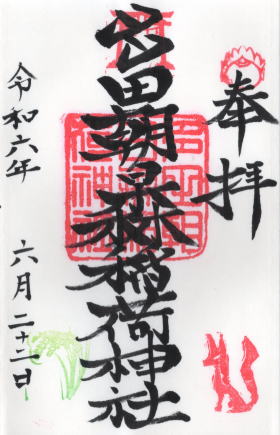 奉拝
田朝日森稲荷神社
令和六年 六月二十二日